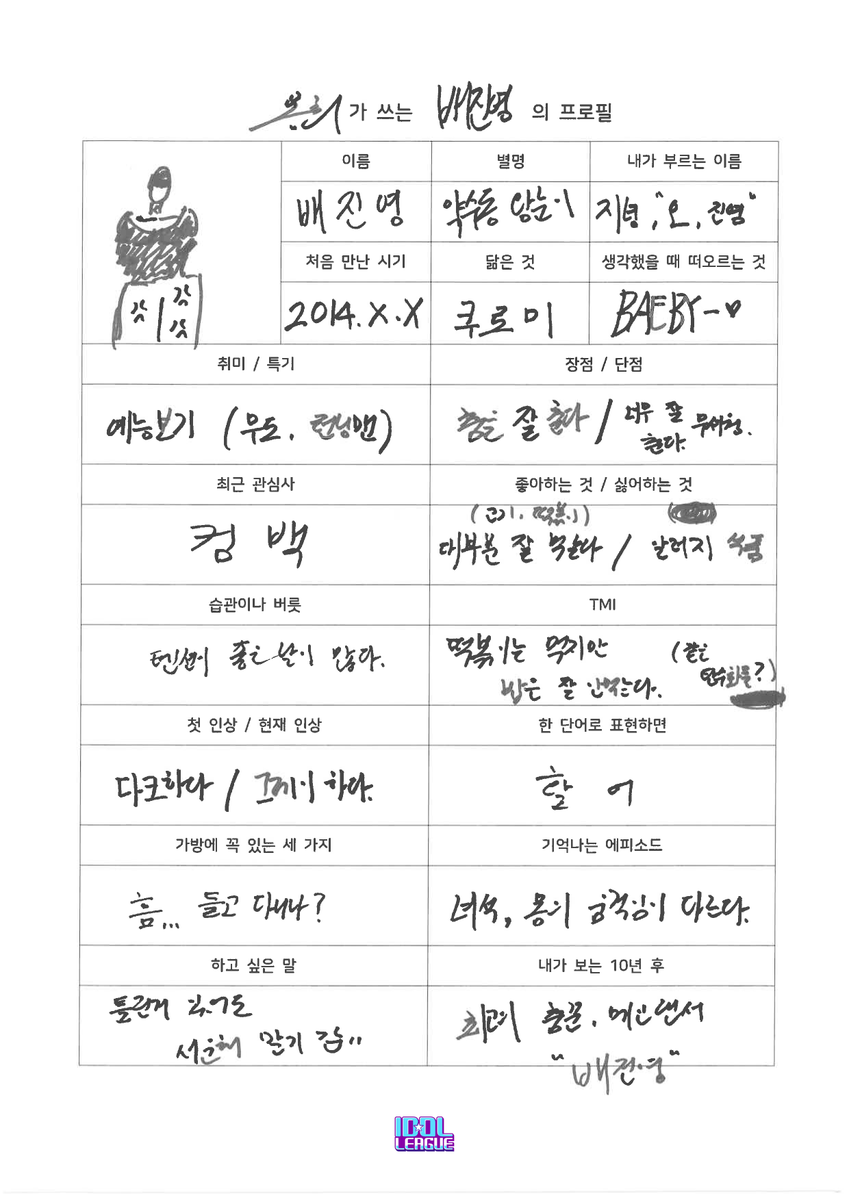 윤희가 쓰는 배진영의 프로필
이름 별명 내가 부르는 이름
배진영 약수동 왕눈이 지녕, "오, 진염"
처음 만난 시기 닮은 것 생각했을 때 떠오르는 것
2014.X.X 쿠로미 BAEBY-♥
각 각
각
취미 / 특기 장점 / 단점
예능보기 (무도, 런닝맨) 춤을 잘 춘다 / 너무 잘
춘다. 무서워.
최근 관심사 좋아하는 것 / 싫어하는 것
(고기, 떡볶이)
컴백 대부분 잘 먹는다 / 알러지 식품
습관이나 버릇 TMI
텐션이 좋은 날이 많다. 떡볶이는 먹지만 (같은
밥은 잘 안먹는다. 탄수화물?)
첫 인상 / 현재 인상 한 단어로 표현하면
다크하다 / 그제이하다. 활어
가방에 꼭 있는 세 가지 기억나는 에피소드
흠... 들고 다니나? 녀석, 몸의 움직임이 다르다.
하고 싶은 말 내가 보는 10년 후
틀린게 있어도 최고의 춤꾼, 메인댄서
서운해 말기 감..
"배진영"
IDOL
LEAGUE